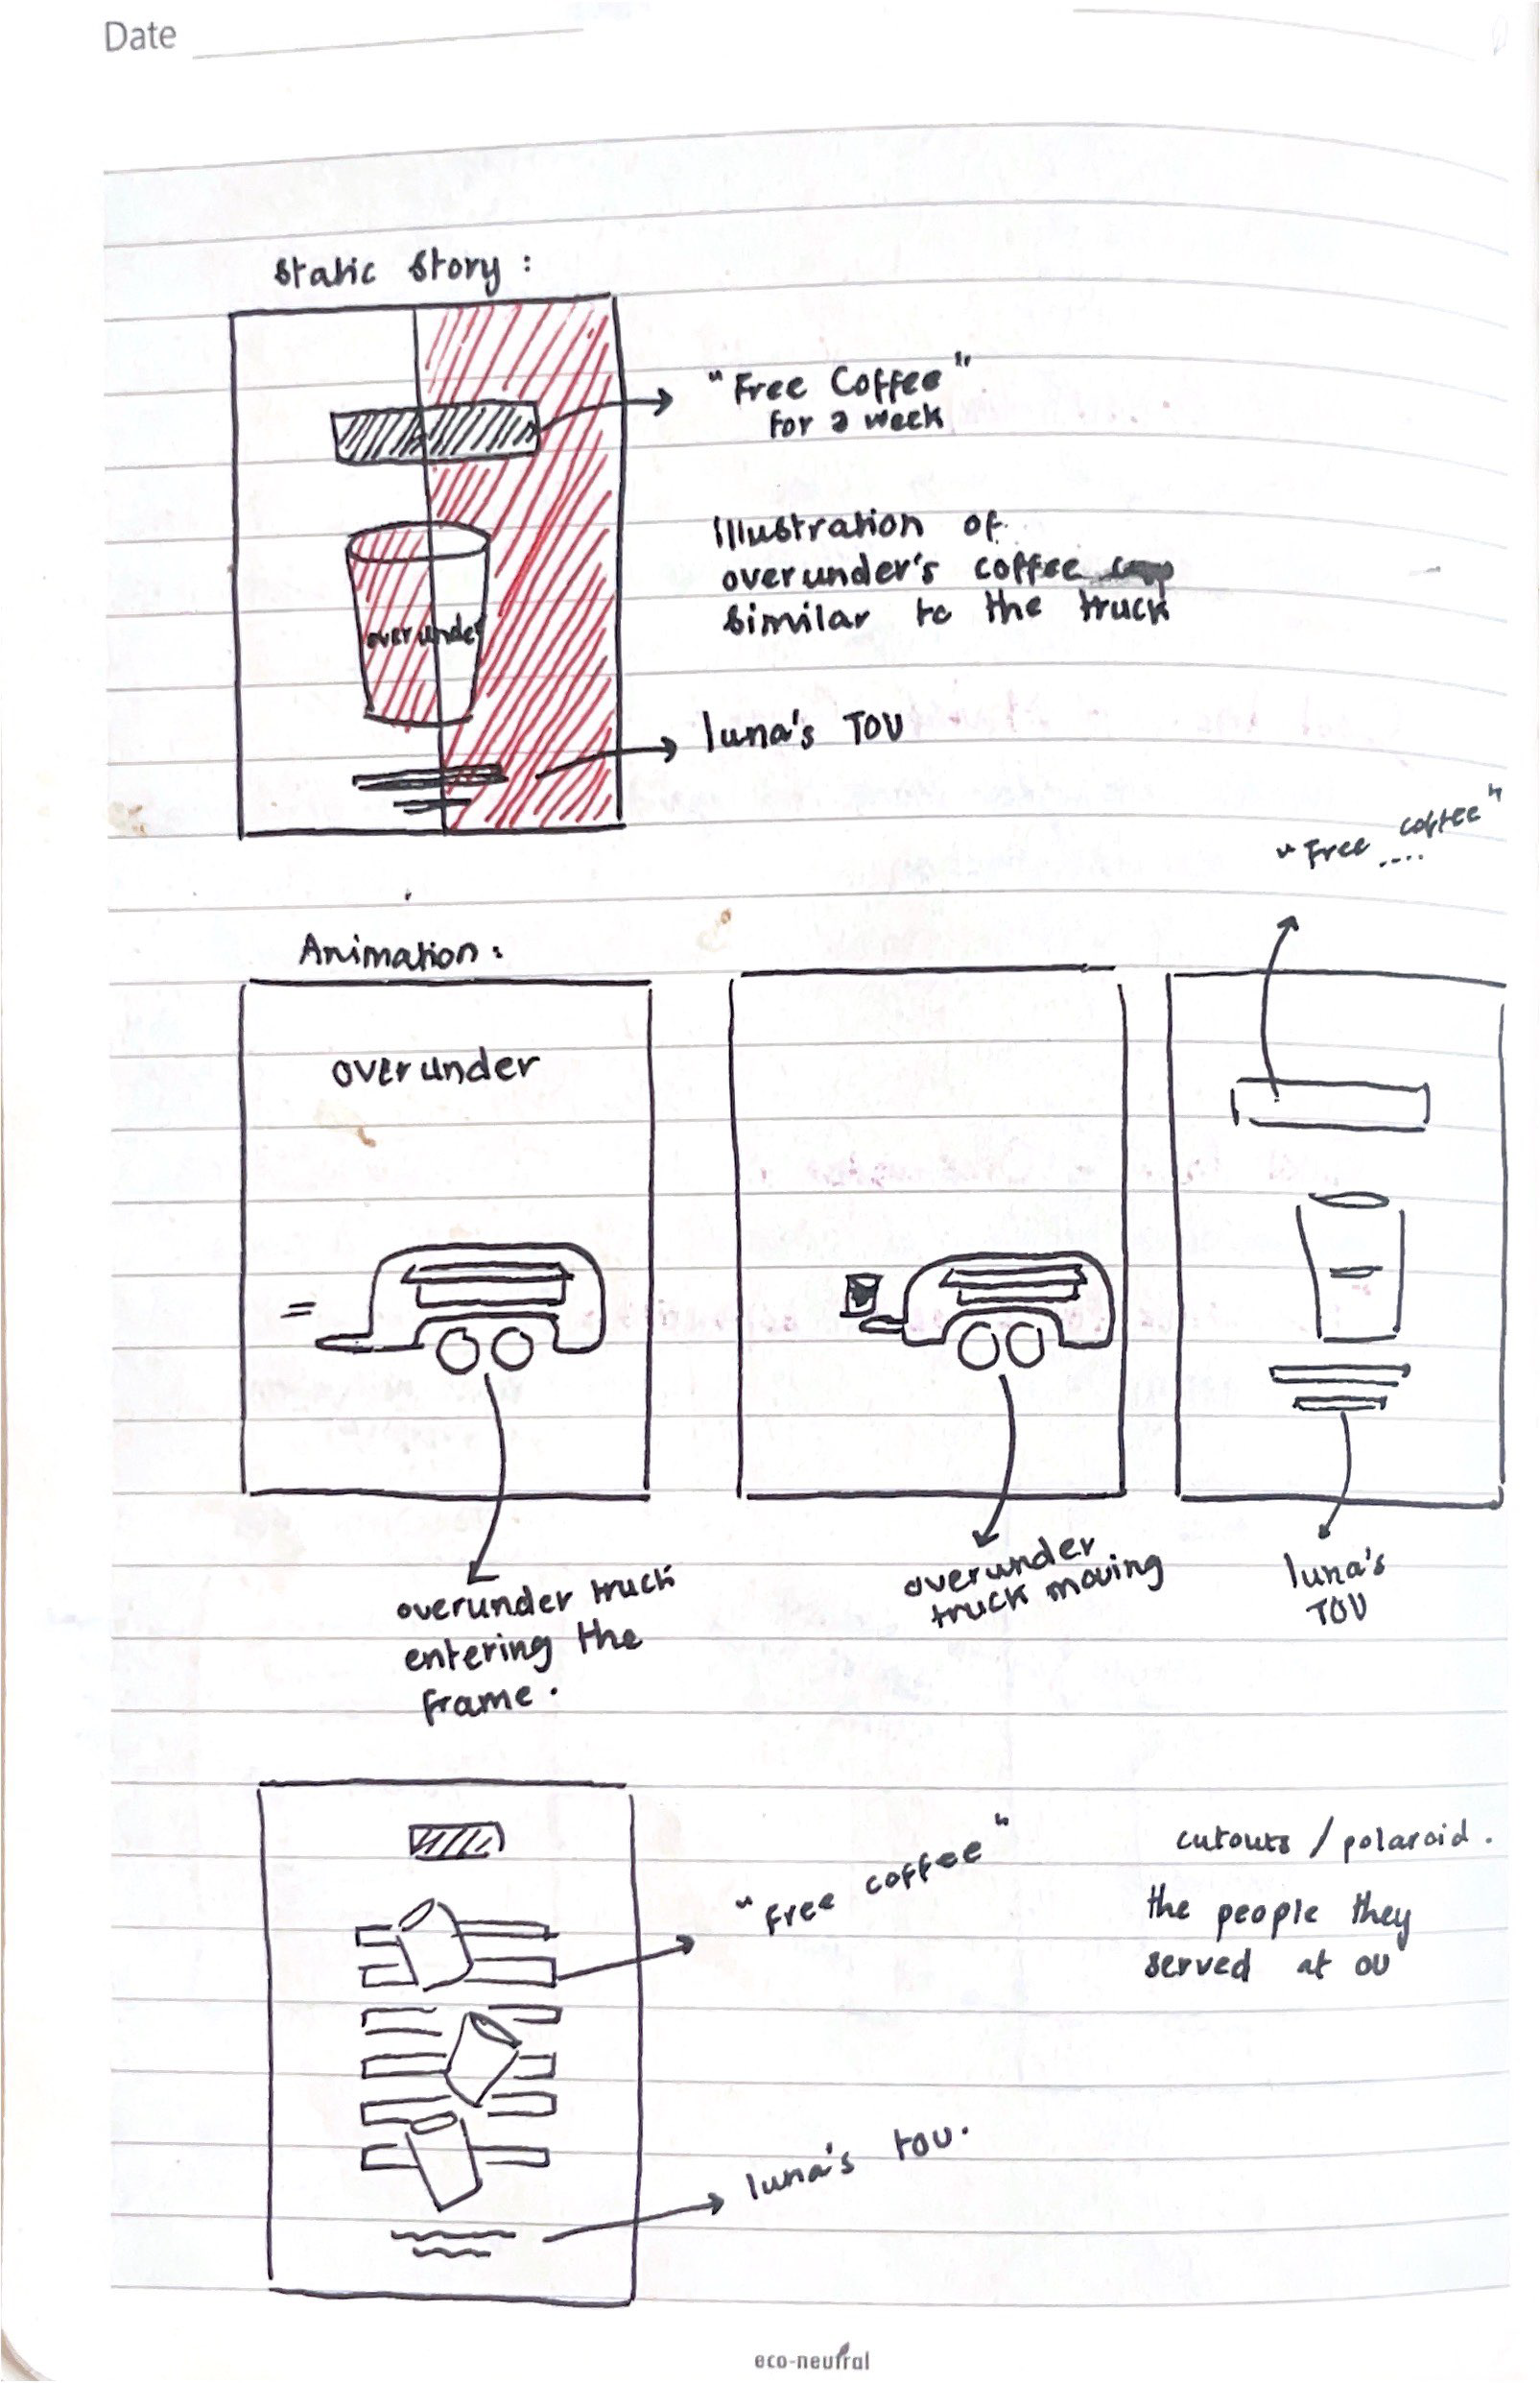 Date
Static Story :
"Free Coffee"
For a week
Illustration of
overunder's coffee cup
similar to the truck
overunder
luna's TOV
"Free .... coffee"
Animation :
overunder
overunder truck
entering the
frame .
overunder
truck moving
luna's
TOV
"free coffee"
cutouts / polaroid .
the people they
served at OU
luna's tov.
eco-neutral